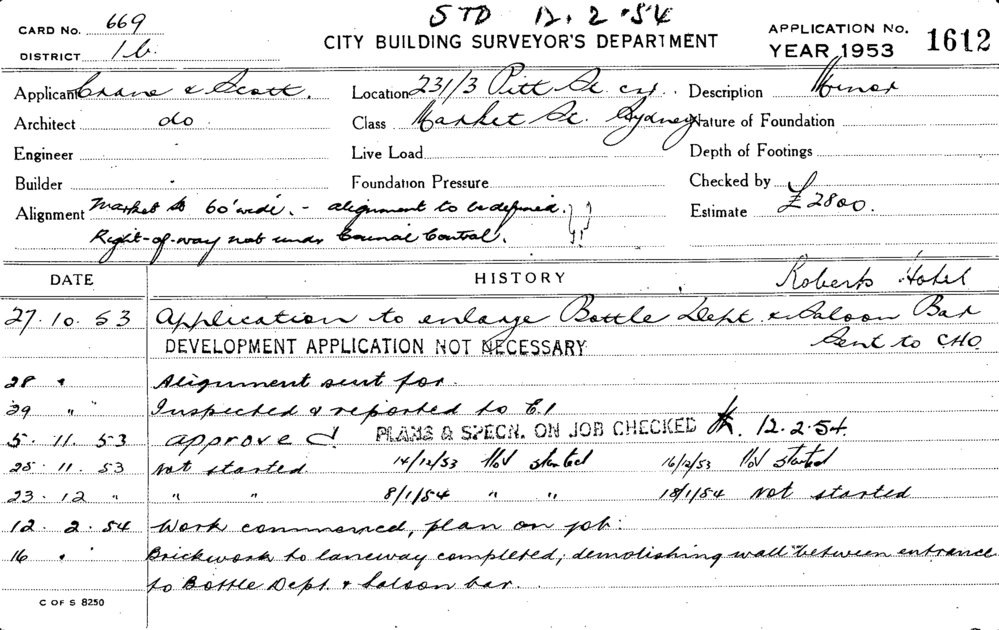 STD 12.2.54
CARD No. 669
CITY BUILDING SURVEYOR'S DEPARTMENT
APPLICATION No. 1612
YEAR 1953
DISTRICT 1b.
Applicant Crane & Scott. Location 231/3 Pitt St cnr. Description Minor
Architect do Class Market St. Sydney Nature of Foundation
Engineer Live Load Depth of Footings
Builder Foundation Pressure Checked by
Alignment Market St 60' wide. - alignment to be defined. Estimate £2800.
Right-of-way not under Council Control.
DATE HISTORY Roberts Hotel
27.10.53 Application to enlarge Bottle Dept & Saloon Bar
DEVELOPMENT APPLICATION NOT NECESSARY Sent to CHO
28 " Alignment sent for.
29 " " Inspected & reported to E.1
5.11.53 approved PLANS & SPECN. ON JOB CHECKED 12.2.54.
25.11.53 Not started. 14/12/53 Not started 16/12/53 Not started
23.12 " " " 8/1/54 " " 18/1/54 Not started
12.2.54 Work commenced, plan on job.
16 " Brickwork to laneway completed; demolishing wall between entrance
to Bottle Dept. & Saloon bar.
C OF S 8250